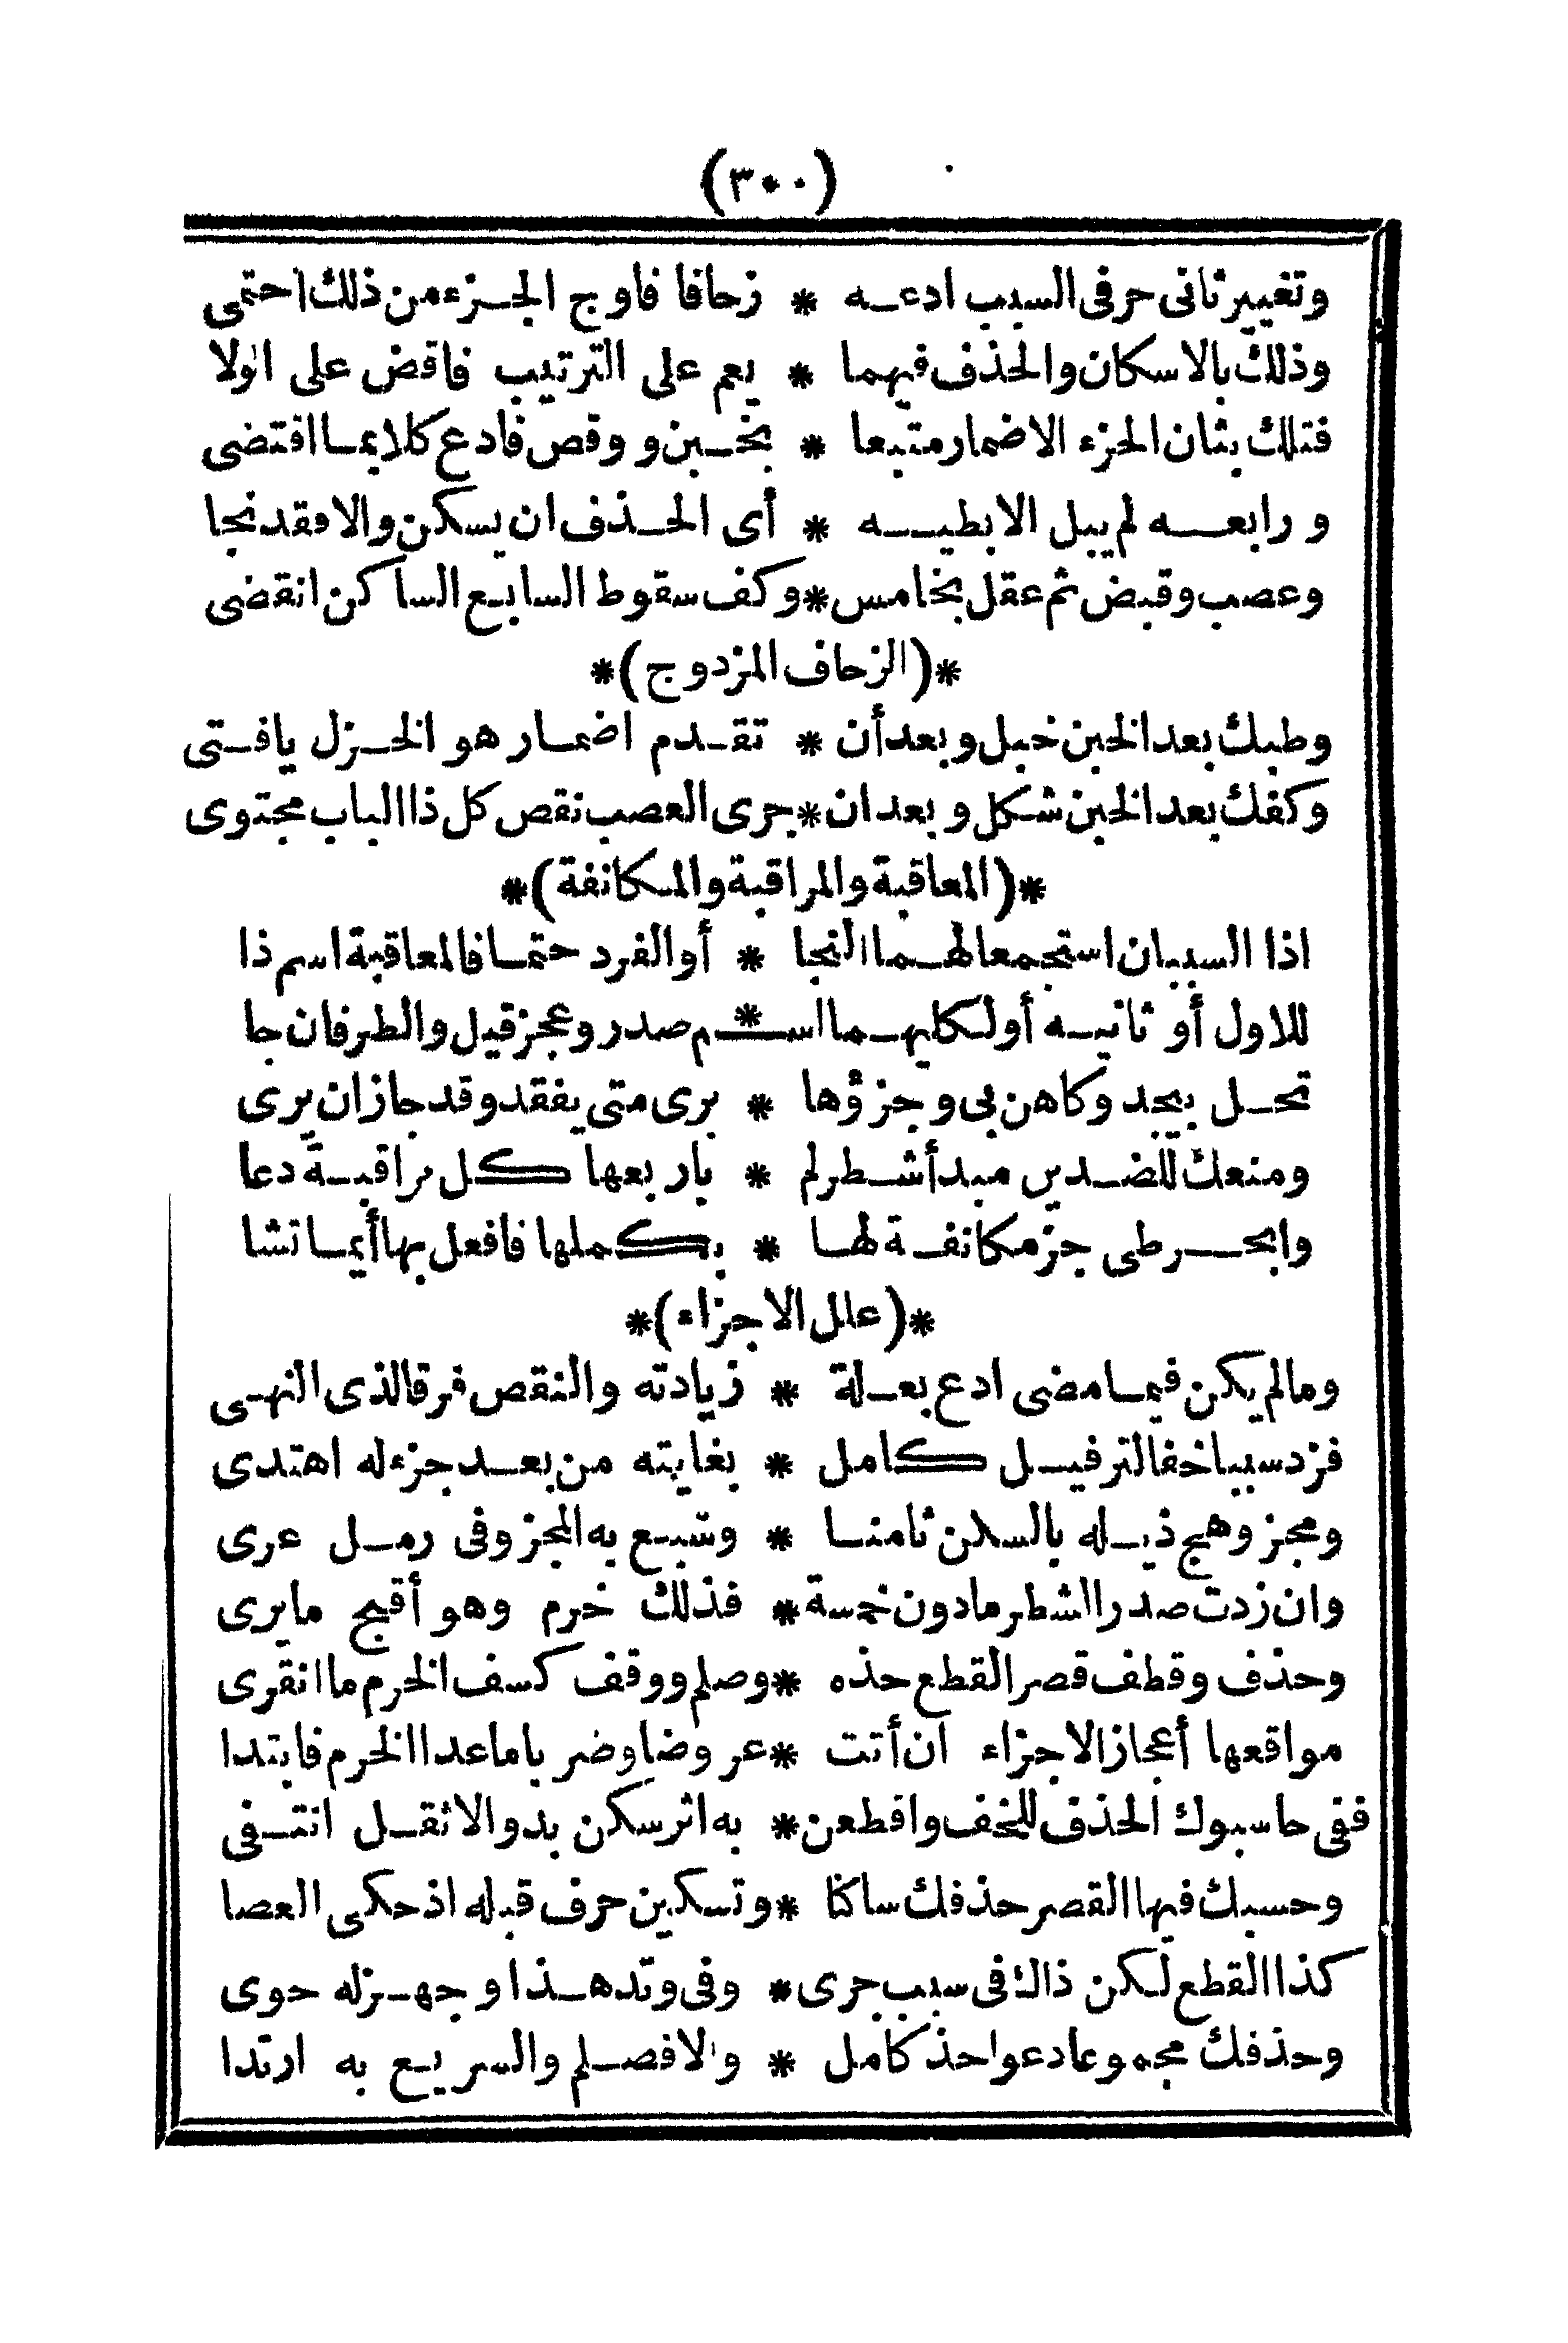 (٣٠٠)
وتغيير ثانى حرفى السبب ادعه * زحافا فاوج الجزء من ذلك احتمى
وذلك بالاسكان والحذف فيهما * يعم على الترتيب فاقض على الولا
فتلك بثان الجزء الاضمار متبعا * بخبن و وقص فادع كلا بما اقتضى
و رابعه لم يبل الا بطيه * أى الحذف ان يسكن والا فقد نجا
وعصب وقبض ثم عقل بخامس * وكف سقوط السابع الساكن انقضى
*(الزحاف المزدوج)*
وطيك بعد الخبن خبل وبعد أن * تقدم اضمار هو الخزل يافتى
وكفك بعد الخبن شكل وبعد ان * جرى العصب نقص كل ذا الباب مجتوى
*(المعاقبة والمراقبة والمكانفة)*
اذا السببان استجمعا لهما النجا * أو الفرد حتما فالمعاقبة اسم ذا
للاول أو ثانيه أولكليهما اسم * صدر وعجز قيل والطرفان جا
تحل بيجد وكاهن بى وجزؤها * برى متى يفقد وقد جاز ان يرى
ومنعك للضدين مبدأ شطر لم * بار بعها كل مراقبة دعا
وابحر طى جز مكانفة لها * بكملها فافعل بها أيما تشا
*(علل الاجزاء)*
ومالم يكن فيما مضى ادع بعلة * زيادته والنقص فرقا لذى النهى
فزد سببا خفا لترفيل كامل * بغايته من بعد جزء له اهتدى
ومجز وهج ذيله بالسكن ثامنا * وسبع به المجزو فى رمل عرى
وان زدت صدر الشطر مادون خمسة * فذلك خزم وهو أقبح مايرى
وحذف وقطف قصر القطع حذه * وصلم ووقف كسف الخرم ما انقرى
مواقعها أعجاز الاجزاء ان أتت * عروضا وضربا ماعدا الخرم فابتدا
ففى حاسبوك الحذف للخف واقطعن * به اثر سكن بدو الاثقل انتفى
وحسبك فيها القصر حذفك ساكنا * وتسكين حرف قبله اذ حكى العصا
كذا القطع لكن ذاك فى سبب جرى * وفى وتد هذا و جهزله حوى
وحذفك مجموعا دعوا حذ كامل * والا فصلم والسريع به ارتدا